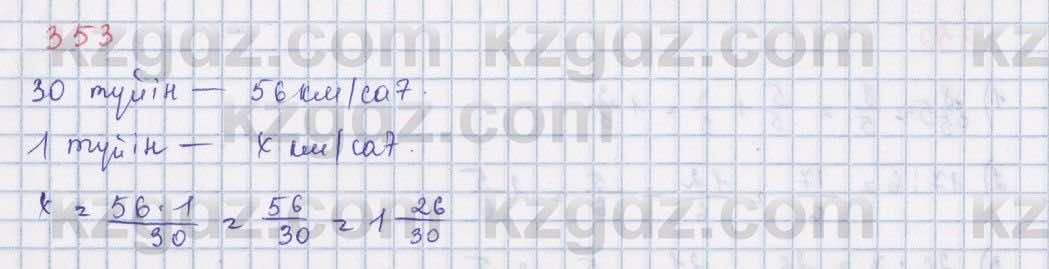 353
30 түйін — 56 км/сағ.
1 түйін — x км/сағ.
x = 56·1/30 = 56/30 = 1 26/30
kzgdz.com kzgdz.com
kzgdz.com
kzgdz.com kzgdz.com